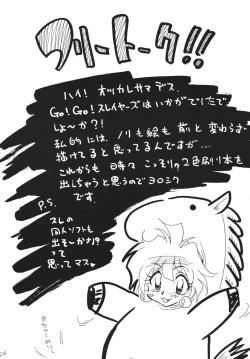 フリートーク!!
ハイ! オツカレサマデス。
Go! Go! スレイヤーズはいかがでしたで
しょーか?!
私的には、ノリも絵も前と変わらず
描けてると思ってるんですが…
これからも時々こっそりの2色刷り本も
出しちゃうと思うのでヨロシク
です。
P.S.
スレの
同人ソフトも
出そーかな!?
って
思ってマス♥
おたのしみに